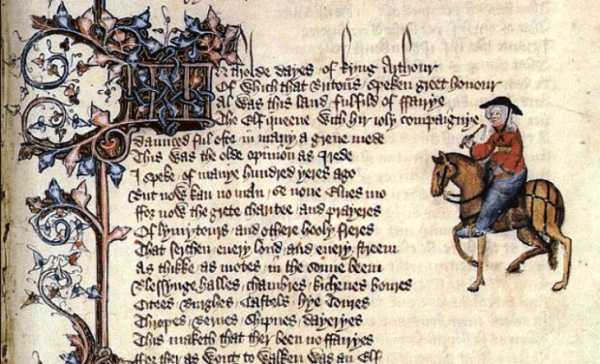 IN tholde dayes of kyng Arthour
Of which that Britons speken greet honour
Al was this land fulfild of ffairye
The Elf queene with hir ioly compaignye
Daunced ful ofte in many a grene mede
This was the olde opinion as I rede
I speke of manye hundred yeres ago
But now kan no man se none Elues mo
ffor now the grete charitee and prayeres
Of lymytours and othere hooly freres
That serchen euery lond and euery streem
As thikke as motes in the sonne beem
Blessynge halles chambres kichenes boures
Citees Burghes Castels hye Toures
Thropes Bernes Shipnes dayeryes
This maketh that ther been no ffairyes
ffor ther as wont to walken was an Elf